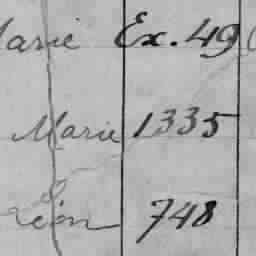 Marie Ex. 49
Marie 1335
Léon 748